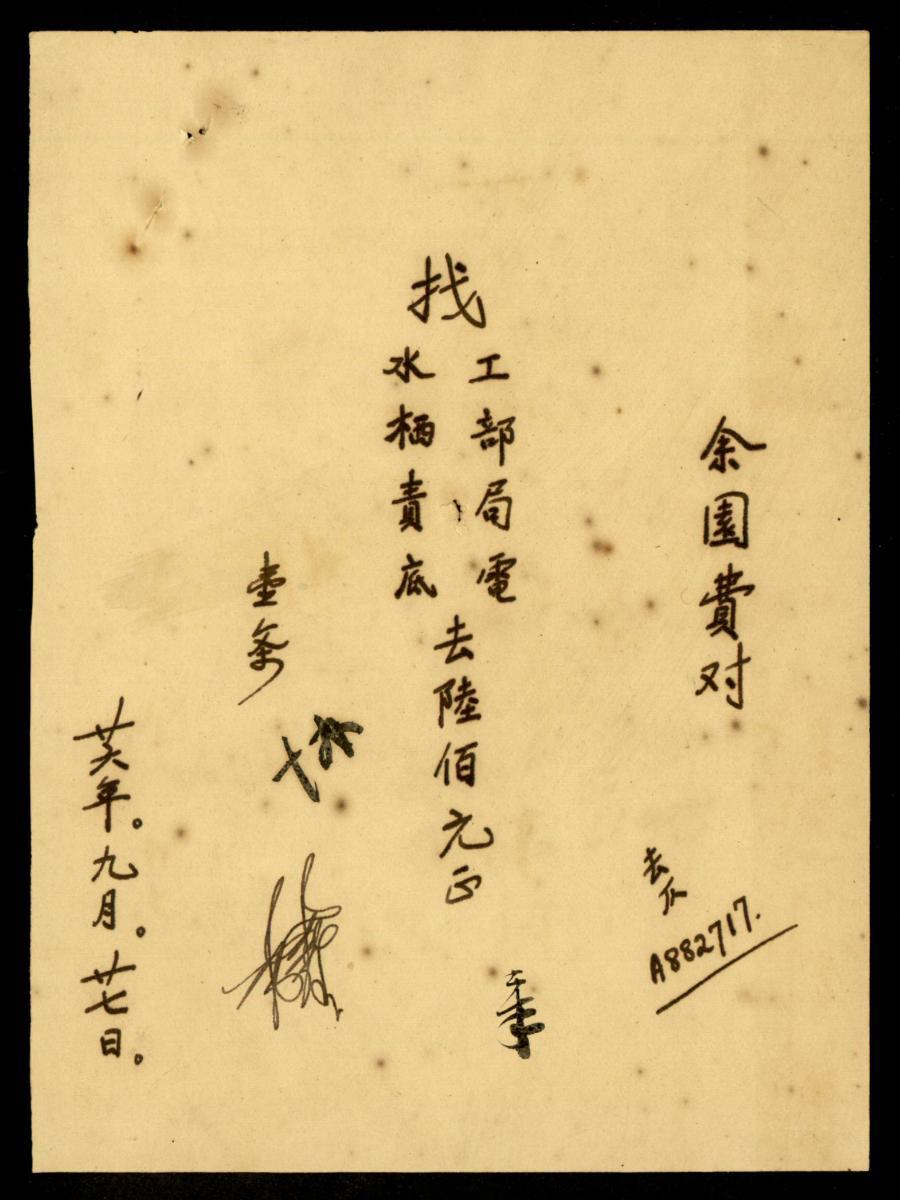 余園費对
去仄
A882717.
找
工部局電
水栖責底
去陸佰元正
季
壹条
廿六年。九月。廿七日。